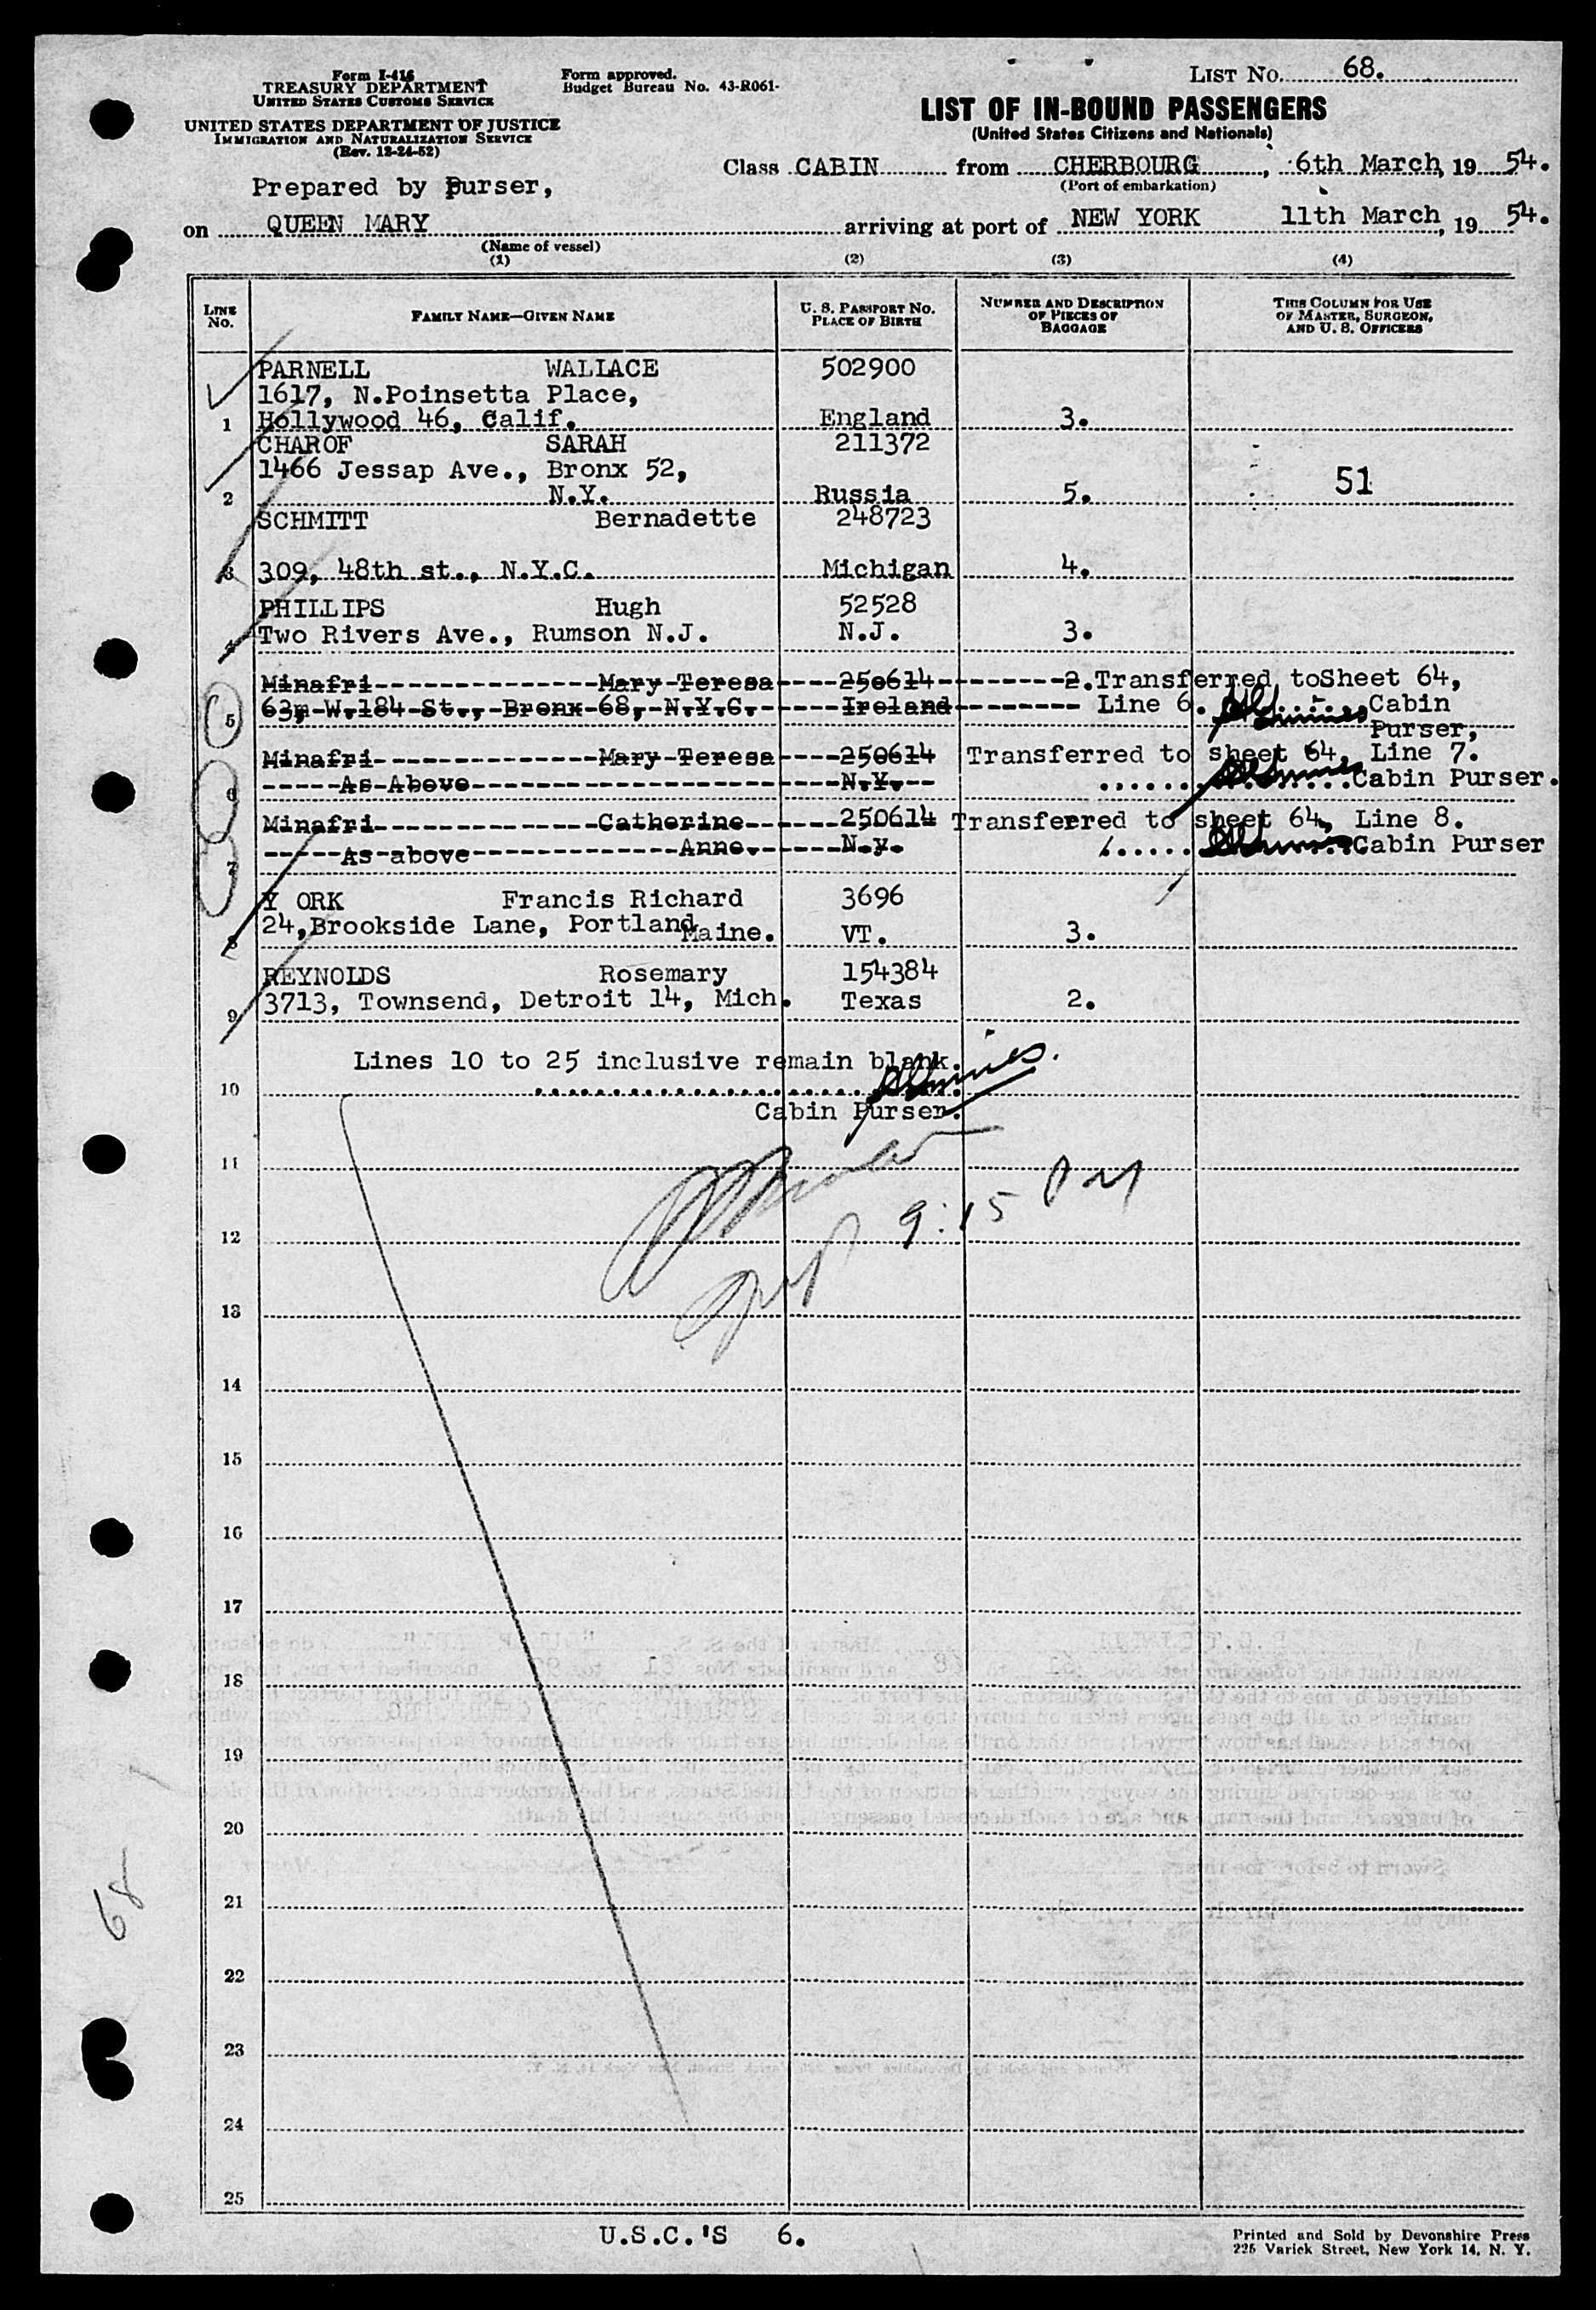 Form I-416
TREASURY DEPARTMENT
UNITED STATES CUSTOMS SERVICE
UNITED STATES DEPARTMENT OF JUSTICE
IMMIGRATION AND NATURALIZATION SERVICE
(Rev. 12-24-52)
Form approved.
Budget Bureau No. 43-R061-
LIST NO. 68.
LIST OF IN-BOUND PASSENGERS
(United States Citizens and Nationals)
Class CABIN from CHERBOURG, 6th March, 19 54.
(Port of embarkation)
Prepared by Purser,
on QUEEN MARY arriving at port of NEW YORK 11th March, 19 54.
(Name of vessel)
(1) (2) (3) (4)
LINE NO. FAMILY NAME—GIVEN NAME U. S. PASSPORT NO. PLACE OF BIRTH NUMBER AND DESCRIPTION OF PIECES OF BAGGAGE THIS COLUMN FOR USE OF MASTER, SURGEON, AND U. S. OFFICERS
PARNELL WALLACE 502900
1617, N.Poinsetta Place,
1 Hollywood 46, Calif. England 3.
CHAROF SARAH 211372
1466 Jessap Ave., Bronx 52, 51
2 N.Y. Russia 5.
SCHMITT Bernadette 248723
3 309, 48th st., N.Y.C. Michigan 4.
PHILLIPS Hugh 52528
4 Two Rivers Ave., Rumson N.J. N.J. 3.
Minafri Mary Teresa 250614 2. Transferred toSheet 64,
5 63, W.184 St., Bronx 68, N.Y.C. Ireland Line 6. Cabin
Purser,
Minafri Mary Teresa 250614 Transferred to sheet 64, Line 7.
6 As Above N.Y. Cabin Purser.
Minafri Catherine 250614 Transferred to sheet 64, Line 8.
7 As above Anne. N.y. Cabin Purser
Y ORK Francis Richard 3696
8 24,Brookside Lane, Portland Maine. VT. 3.
REYNOLDS Rosemary 154384
9 3713, Townsend, Detroit 14, Mich. Texas 2.
Lines 10 to 25 inclusive remain blank.
10
Cabin Purser.
11
9:15 PM
12
13
14
15
16
17
18
19
20
21
22
23
24
25
68
U.S.C.'S 6.
Printed and Sold by Devonshire Press
225 Varick Street, New York 14, N. Y.